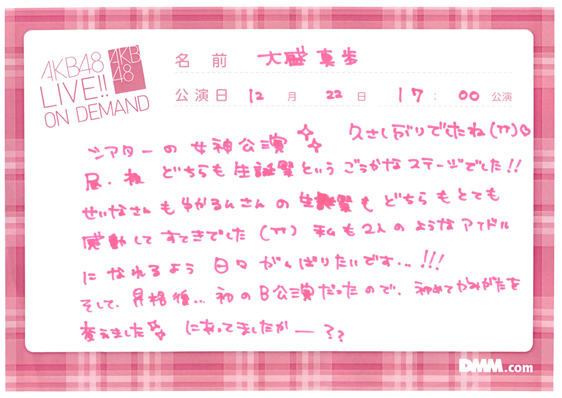 AKB48
LIVE!!
ON DEMAND
AKB
48
名前 大盛真歩
公演日 12月 22日 17:00 公演
シアターの女神公演 久さしぶりでしたね(π)
昼・夜 どちらも生誕祭という ごうかなステージでした!!
せいなさんも ゆかるんさんの 生誕祭も どちらもとても
感動して すてきでした (π) 私も 2人のようなアイドル
に なれるよう 日々 がんばりたいです...!!!
そして、昇格後... 初のB公演だったので、初めてかみがたを
変えました にあってましたかー??
DMM.com